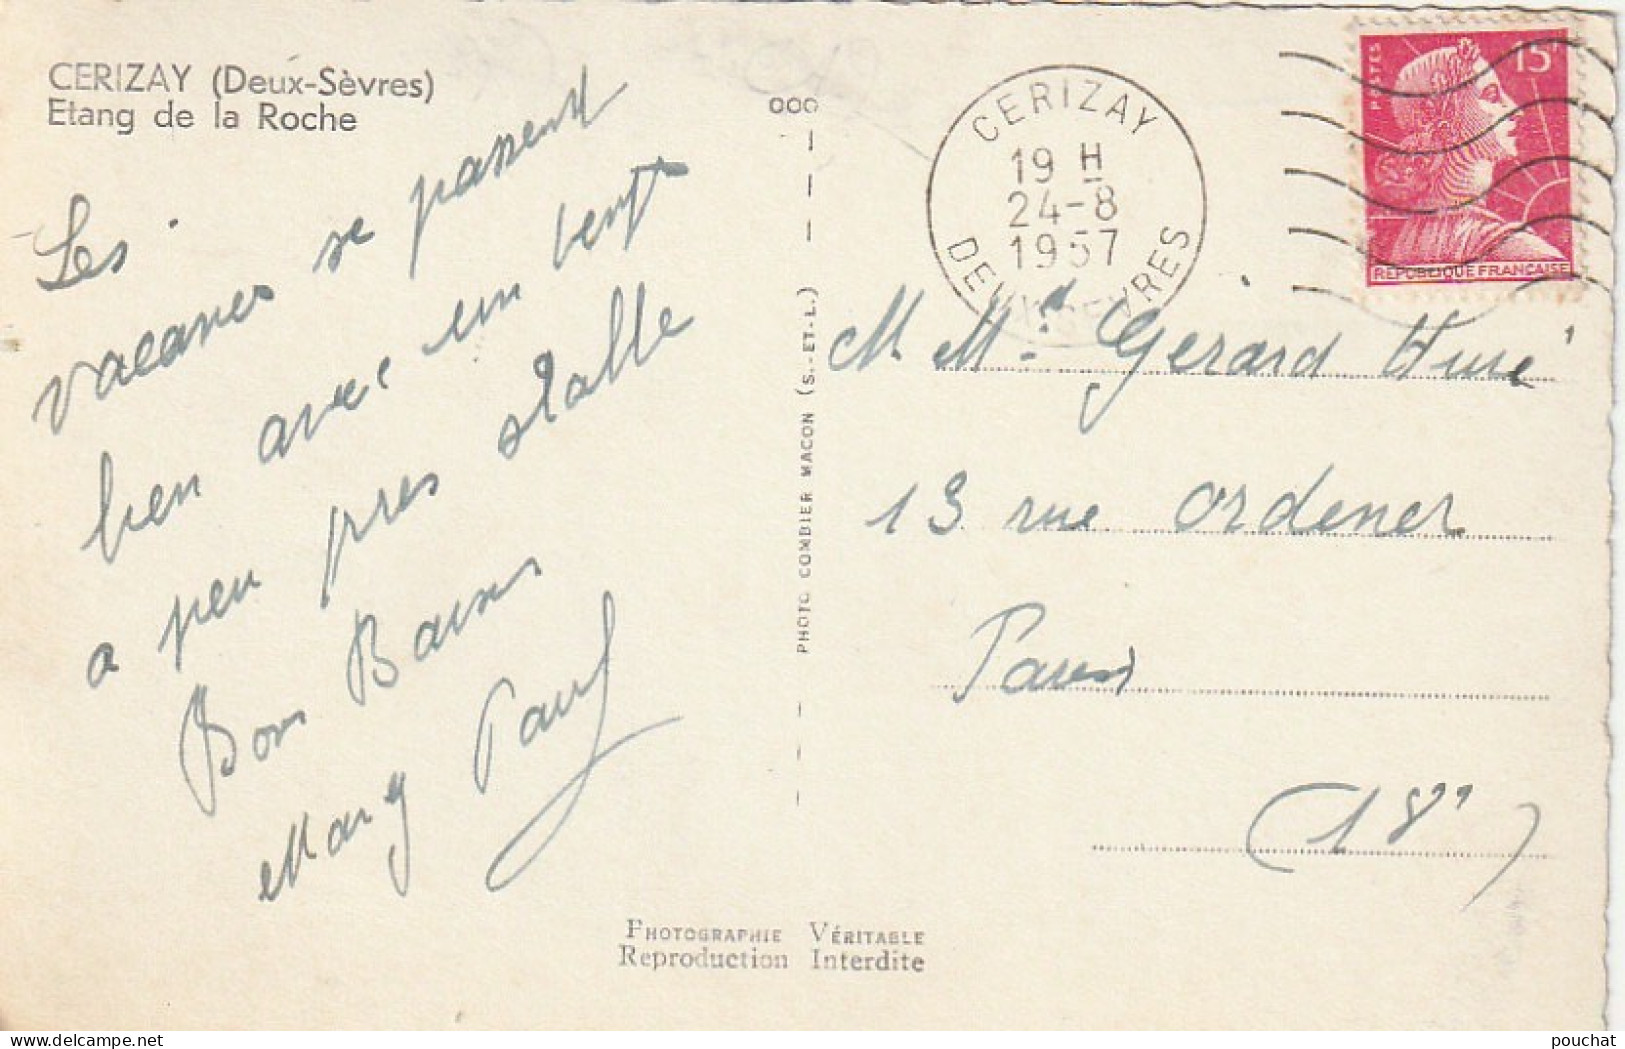 CERIZAY (Deux-Sèvres)
Etang de la Roche
Les
vacances se passent
bien avec un temps
a peu pres stable
Bons Baisers
Mary Paul
000
PHOTO COMBIER MACON (S.-ET-L.)
PHOTOGRAPHIE VÉRITABLE
Reproduction Interdite
CERIZAY
19 H
24-8
1957
DEUX-SEVRES
POSTES
15F
REPUBLIQUE FRANÇAISE
M. Mme Gérard
13 rue Ordener
Paris
(18")
pouchat